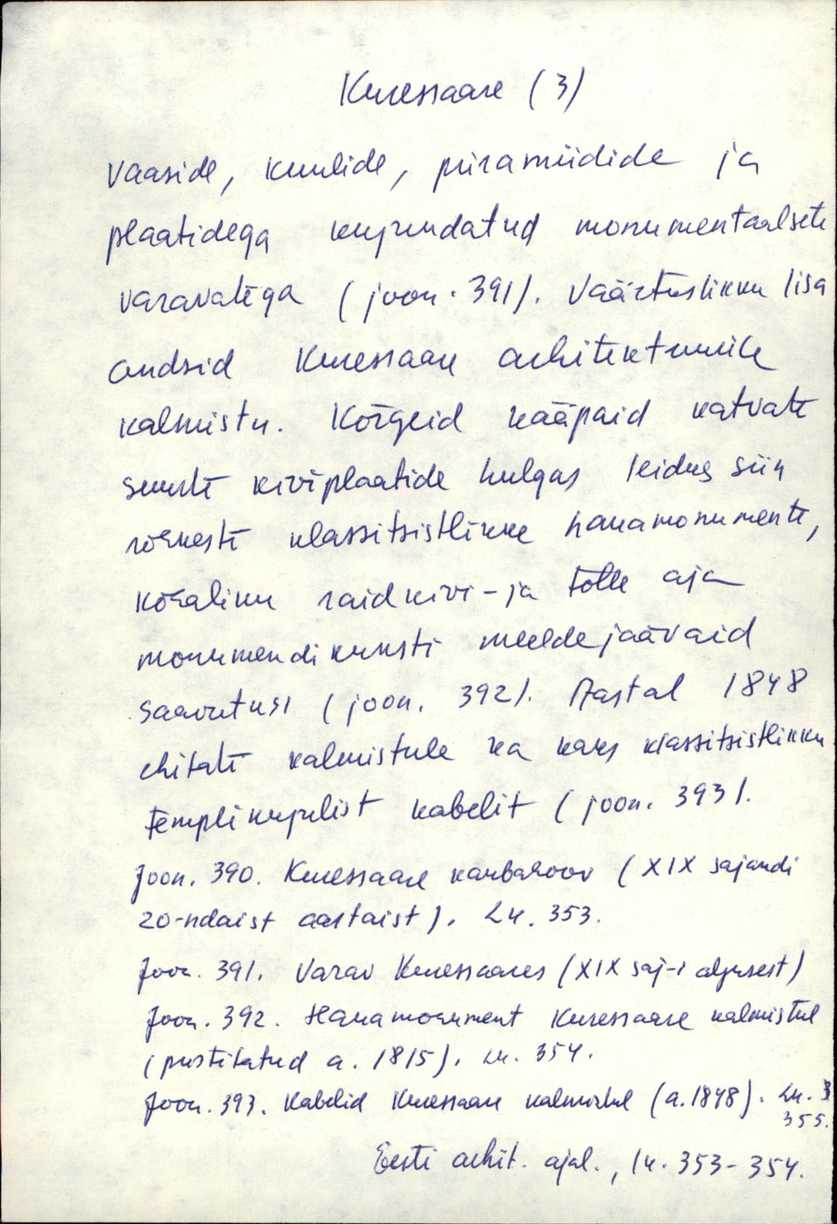 Kuressaare (3)
vaaside, kuulide, püramiidide ja
plaatidega kujundatud monumentaalsete
väravatega (joon. 391). Väärtuslikku lisa
andsid Kuressaare arhitektuurile
kalmistu. Kõrgeid kääpaid katvate
suurte kiviplaatide hulgas leidus siin
rohkesti klassitsistlikke hauamonumente,
kohaliku raidkivi- ja tolle aja
monumendikunsti meeldejäävaid
saavutusi (joon. 392). Aastal 1848
ehitati kalmistule ka kaks klassitsistlikku
templikujulist kabelit (joon. 393).
Joon. 390. Kuressaare kaubahoov (XIX sajandi
20-ndaist aastaist). Lk. 353.
Joon. 391. Värav Kuressaares (XIX saj-i algusest)
Joon. 392. Hauamonument Kuressaare kalmistul
(püstitatud a. 1815). Lk. 354.
Joon. 393. Kabelid Kuressaare kalmistul (a. 1848). Lk.
355.
Eesti arhit. ajal., lk. 353-354.